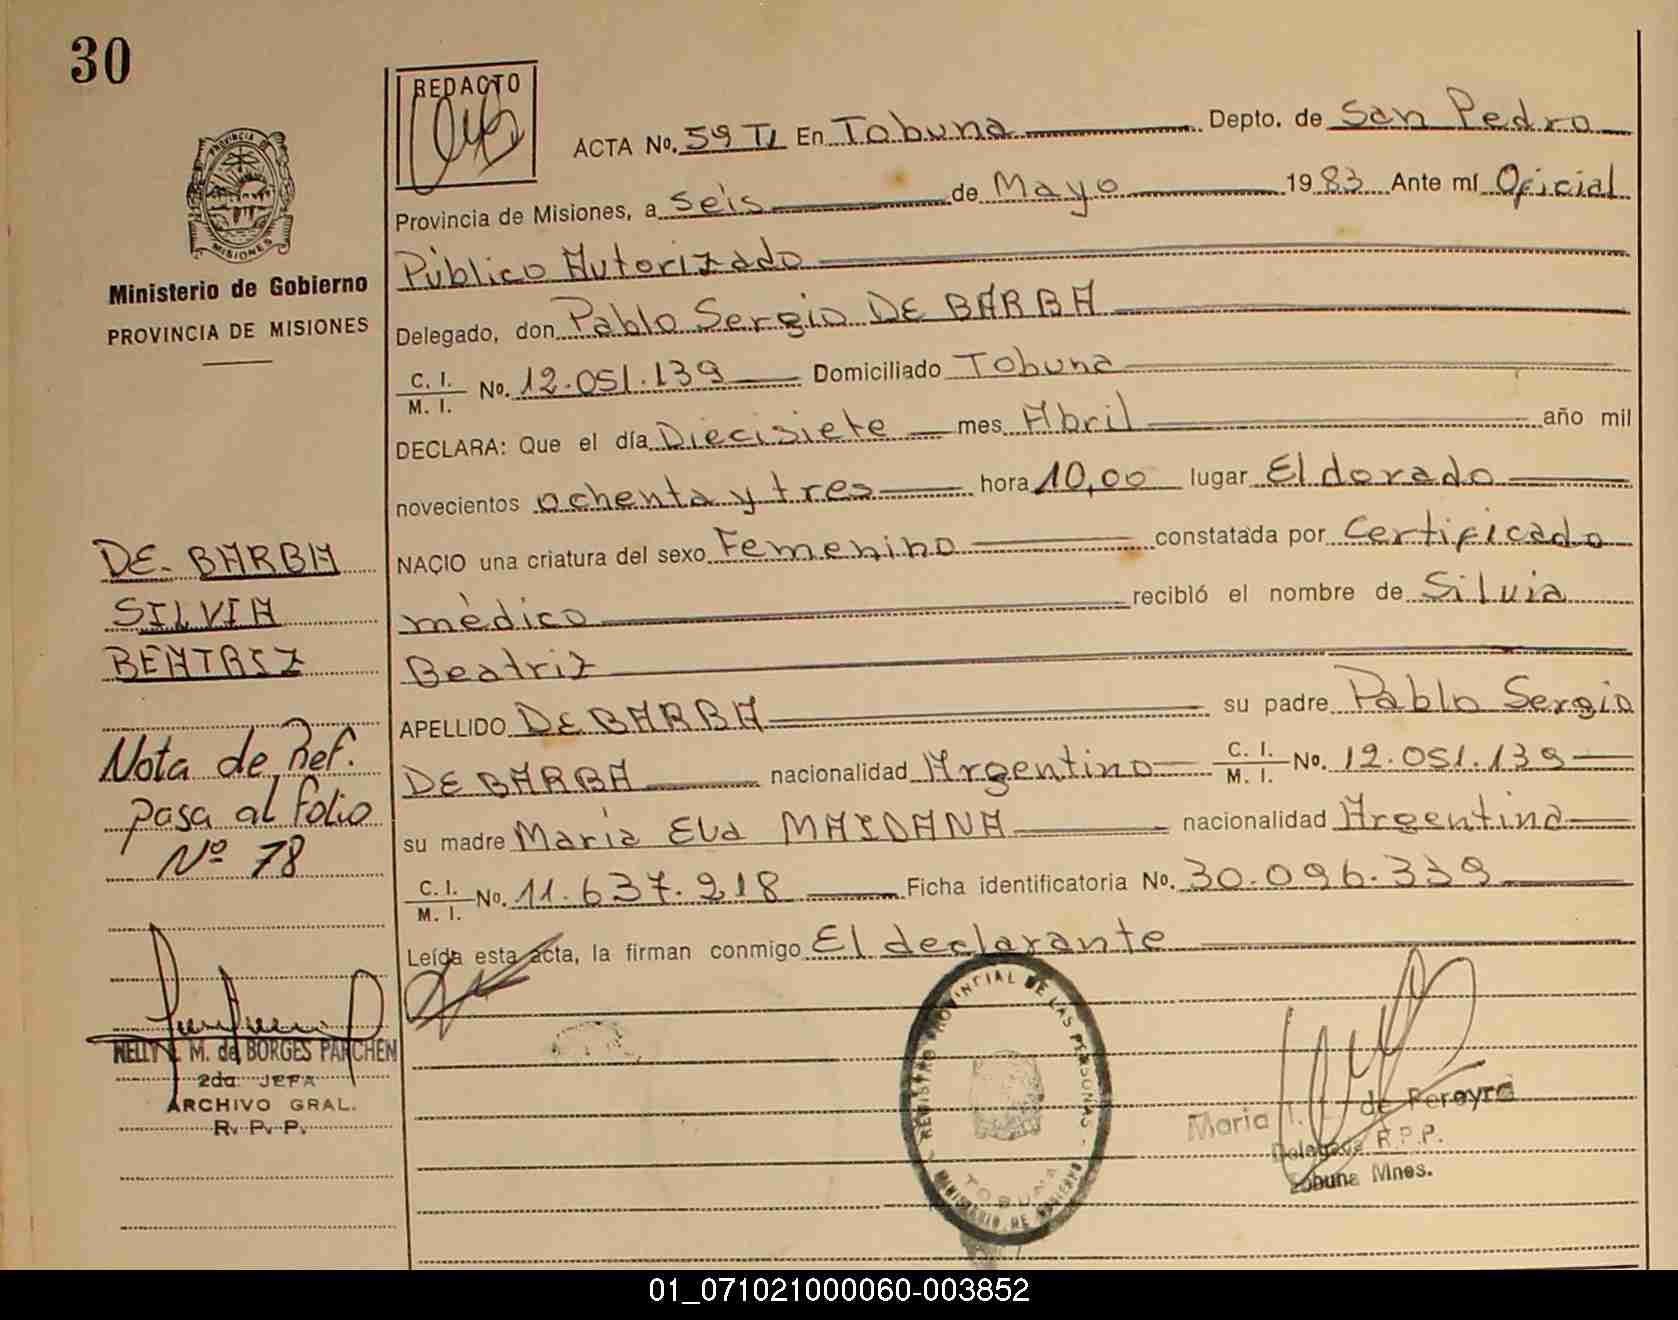 30
REDACTO
ACTA No. 59 TI En Tobuna Depto. de San Pedro
Provincia de Misiones, a Seis de Mayo 1983 Ante mí Oficial
Público Autorizado
Delegado, don Pablo Sergio DE BARBA
C. I. M. I. No. 12.051.139 Domiciliado Tobuna
DECLARA: Que el día Diecisiete mes Abril año mil
novecientos ochenta y tres hora 10,00 lugar Eldorado
NACIO una criatura del sexo Femenino constatada por Certificado
mèdico recibió el nombre de Silvia
Beatriz
APELLIDO DE BARBA su padre Pablo Sergio
DE BARBA nacionalidad Argentino C. I. M. I. No. 12.051.139
su madre María Eva MAIDANA nacionalidad Argentina
C. I. M. I. No. 11.637.218 Ficha identificatoria No. 30.096.339
Leída esta acta, la firman conmigo El declarante
PROVINCIA DE MISIONES
Ministerio de Gobierno
PROVINCIA DE MISIONES
DE BARBA
SILVIA
BEATRIZ
Nota de Ref.
pasa al folio
Nº 78
NELLY M. de BORGES PARCHEN
2da. JEFA
ARCHIVO GRAL.
R. P. P.
REGISTRO PROVINCIAL DE LAS PERSONAS - MINISTERIO DE GOBIERNO
TOBUNA
Maria I. de Pereyra
Delegada R.P.P.
Tobuna Mnes.
01_071021000060-003852